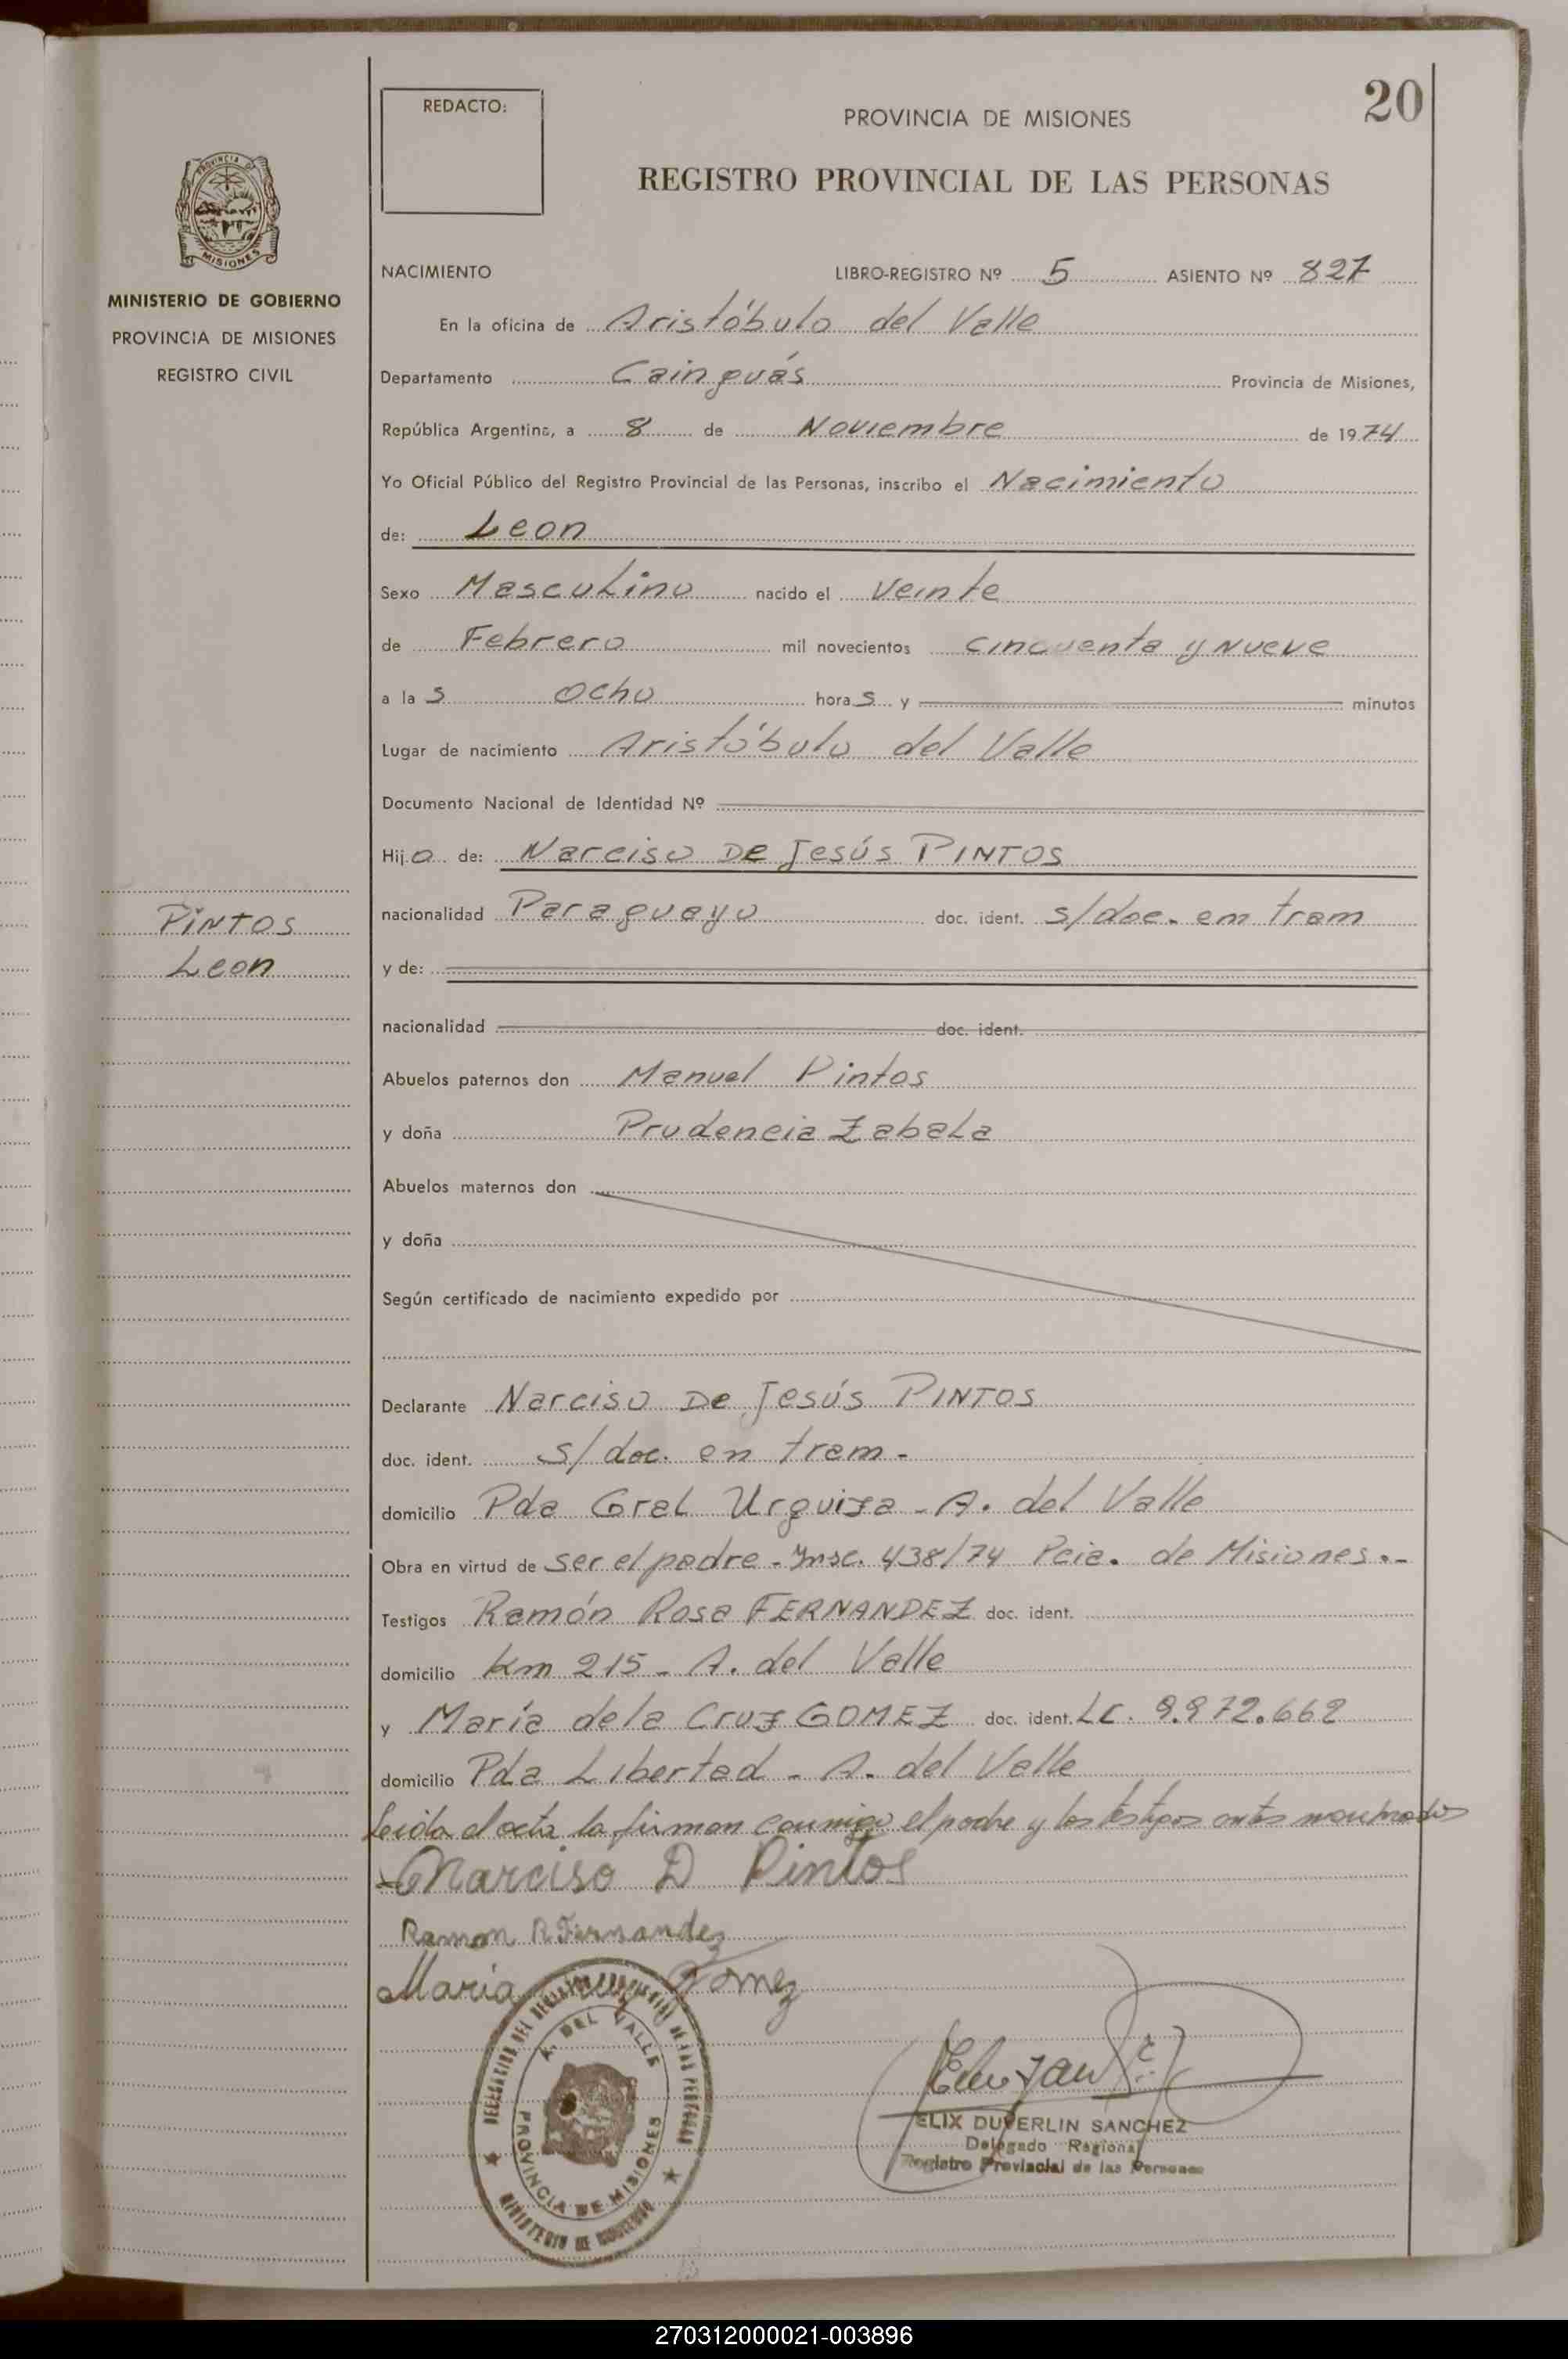 20
REDACTO:
PROVINCIA DE MISIONES
REGISTRO PROVINCIAL DE LAS PERSONAS
PROVINCIA DE
MISIONES
MINISTERIO DE GOBIERNO
PROVINCIA DE MISIONES
REGISTRO CIVIL
NACIMIENTO LIBRO-REGISTRO Nº 5 ASIENTO Nº 827
En la oficina de Aristóbulo del Valle
Departamento Cainguás Provincia de Misiones,
República Argentina, a 8 de Noviembre de 1974
Yo Oficial Público del Registro Provincial de las Personas, inscribo el Nacimiento
de: Leon
Sexo Masculino nacido el veinte
de Febrero mil novecientos cincuenta y nueve
a las ocho horas y minutos
Lugar de nacimiento Aristóbulo del Valle
Documento Nacional de Identidad Nº
Hijo de: Narciso De Jesús PINTOS
nacionalidad Paraguayo doc. ident. s/doc. em tram
PINTOS
Leon
y de:
nacionalidad doc. ident.
Abuelos paternos don Manuel Pintos
y doña Prudencia Zabala
Abuelos maternos don
y doña
Según certificado de nacimiento expedido por
Declarante Narciso De Jesús PINTOS
doc. ident. s/doc. en tram-
domicilio Pda Gral Urquiza - A. del Valle
Obra en virtud de ser el padre - Insc. 438/74 Pcia. de Misiones.-
Testigos Ramón Rosa FERNANDEZ doc. ident.
domicilio Km 215 - A. del Valle
y María de la Cruz GOMEZ doc. ident. LC. 9.972.662
domicilio Pda Libertad - A. del Valle
Leida el acta la firman conmigo el padre y los testigos antes nombrados
Narciso D Pintos
Ramon R Fernandez
Maria Gomez
DELEGACION DEL REGISTRO PROVINCIAL DE LAS PERSONAS
A. DEL VALLE
PROVINCIA DE MISIONES
MINISTERIO DE GOBIERNO
ELIX DUVERLIN SANCHEZ
Delegado Regional
Registro Provincial de las Personas
270312000021-003896